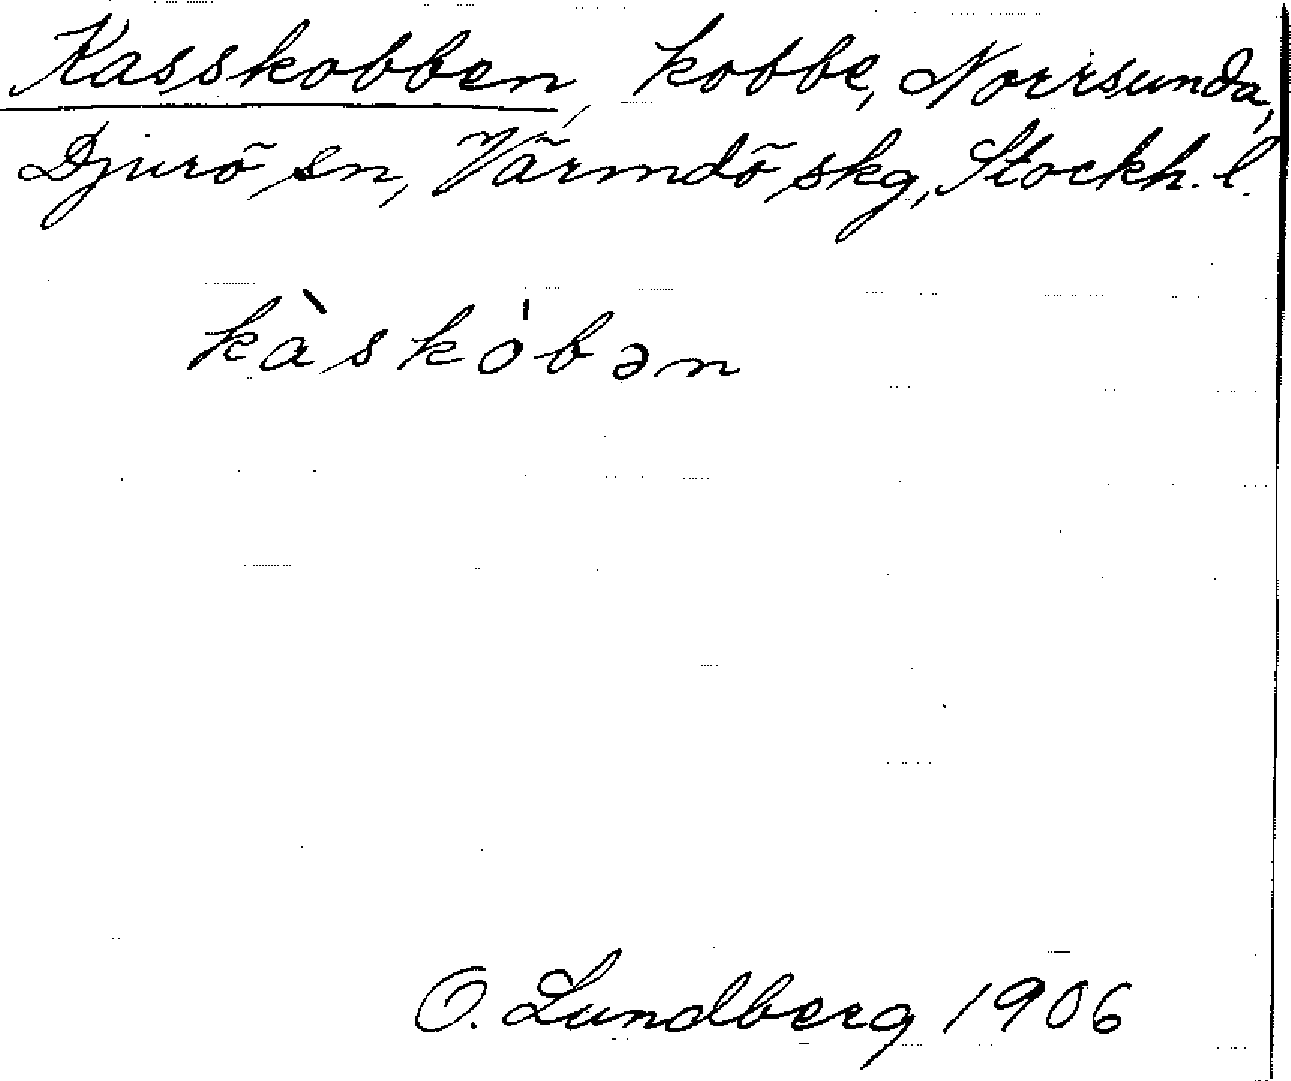 Kasskobben, kobbe, Norrsunda,
Djurö sn, Värmdö skg, Stockh. l.
kàskób​ən
O. Lundberg 1906